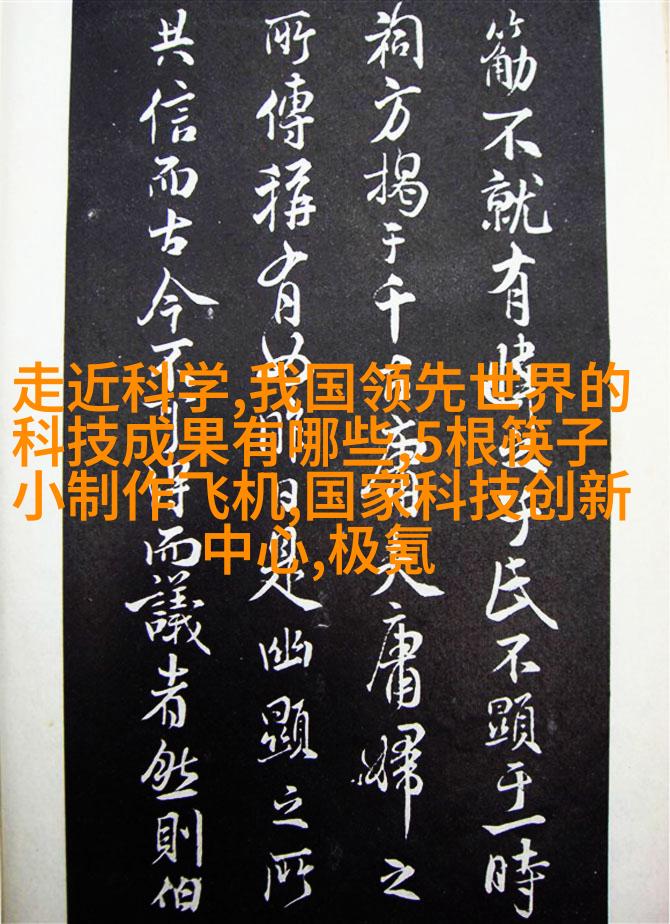 走近科学,我国领先世界的
科技成果有哪些,5根筷子
小制作飞机,国家科技创新
中心,极氪
不就有氏不顯于一時
祠方揭于千夫庸婦之
所傳稱有是幽顯之所
共信而古今不可得而議者然則伯